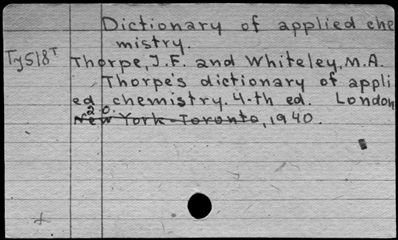 Dictionary of applied che
mistry.
Ty518T Thorpe, J.F. and Whiteley, M.A.
Thorpe's dictionary of appli
ed chemistry. 4-th ed. London
2.0.
New York-Toronto, 1940.